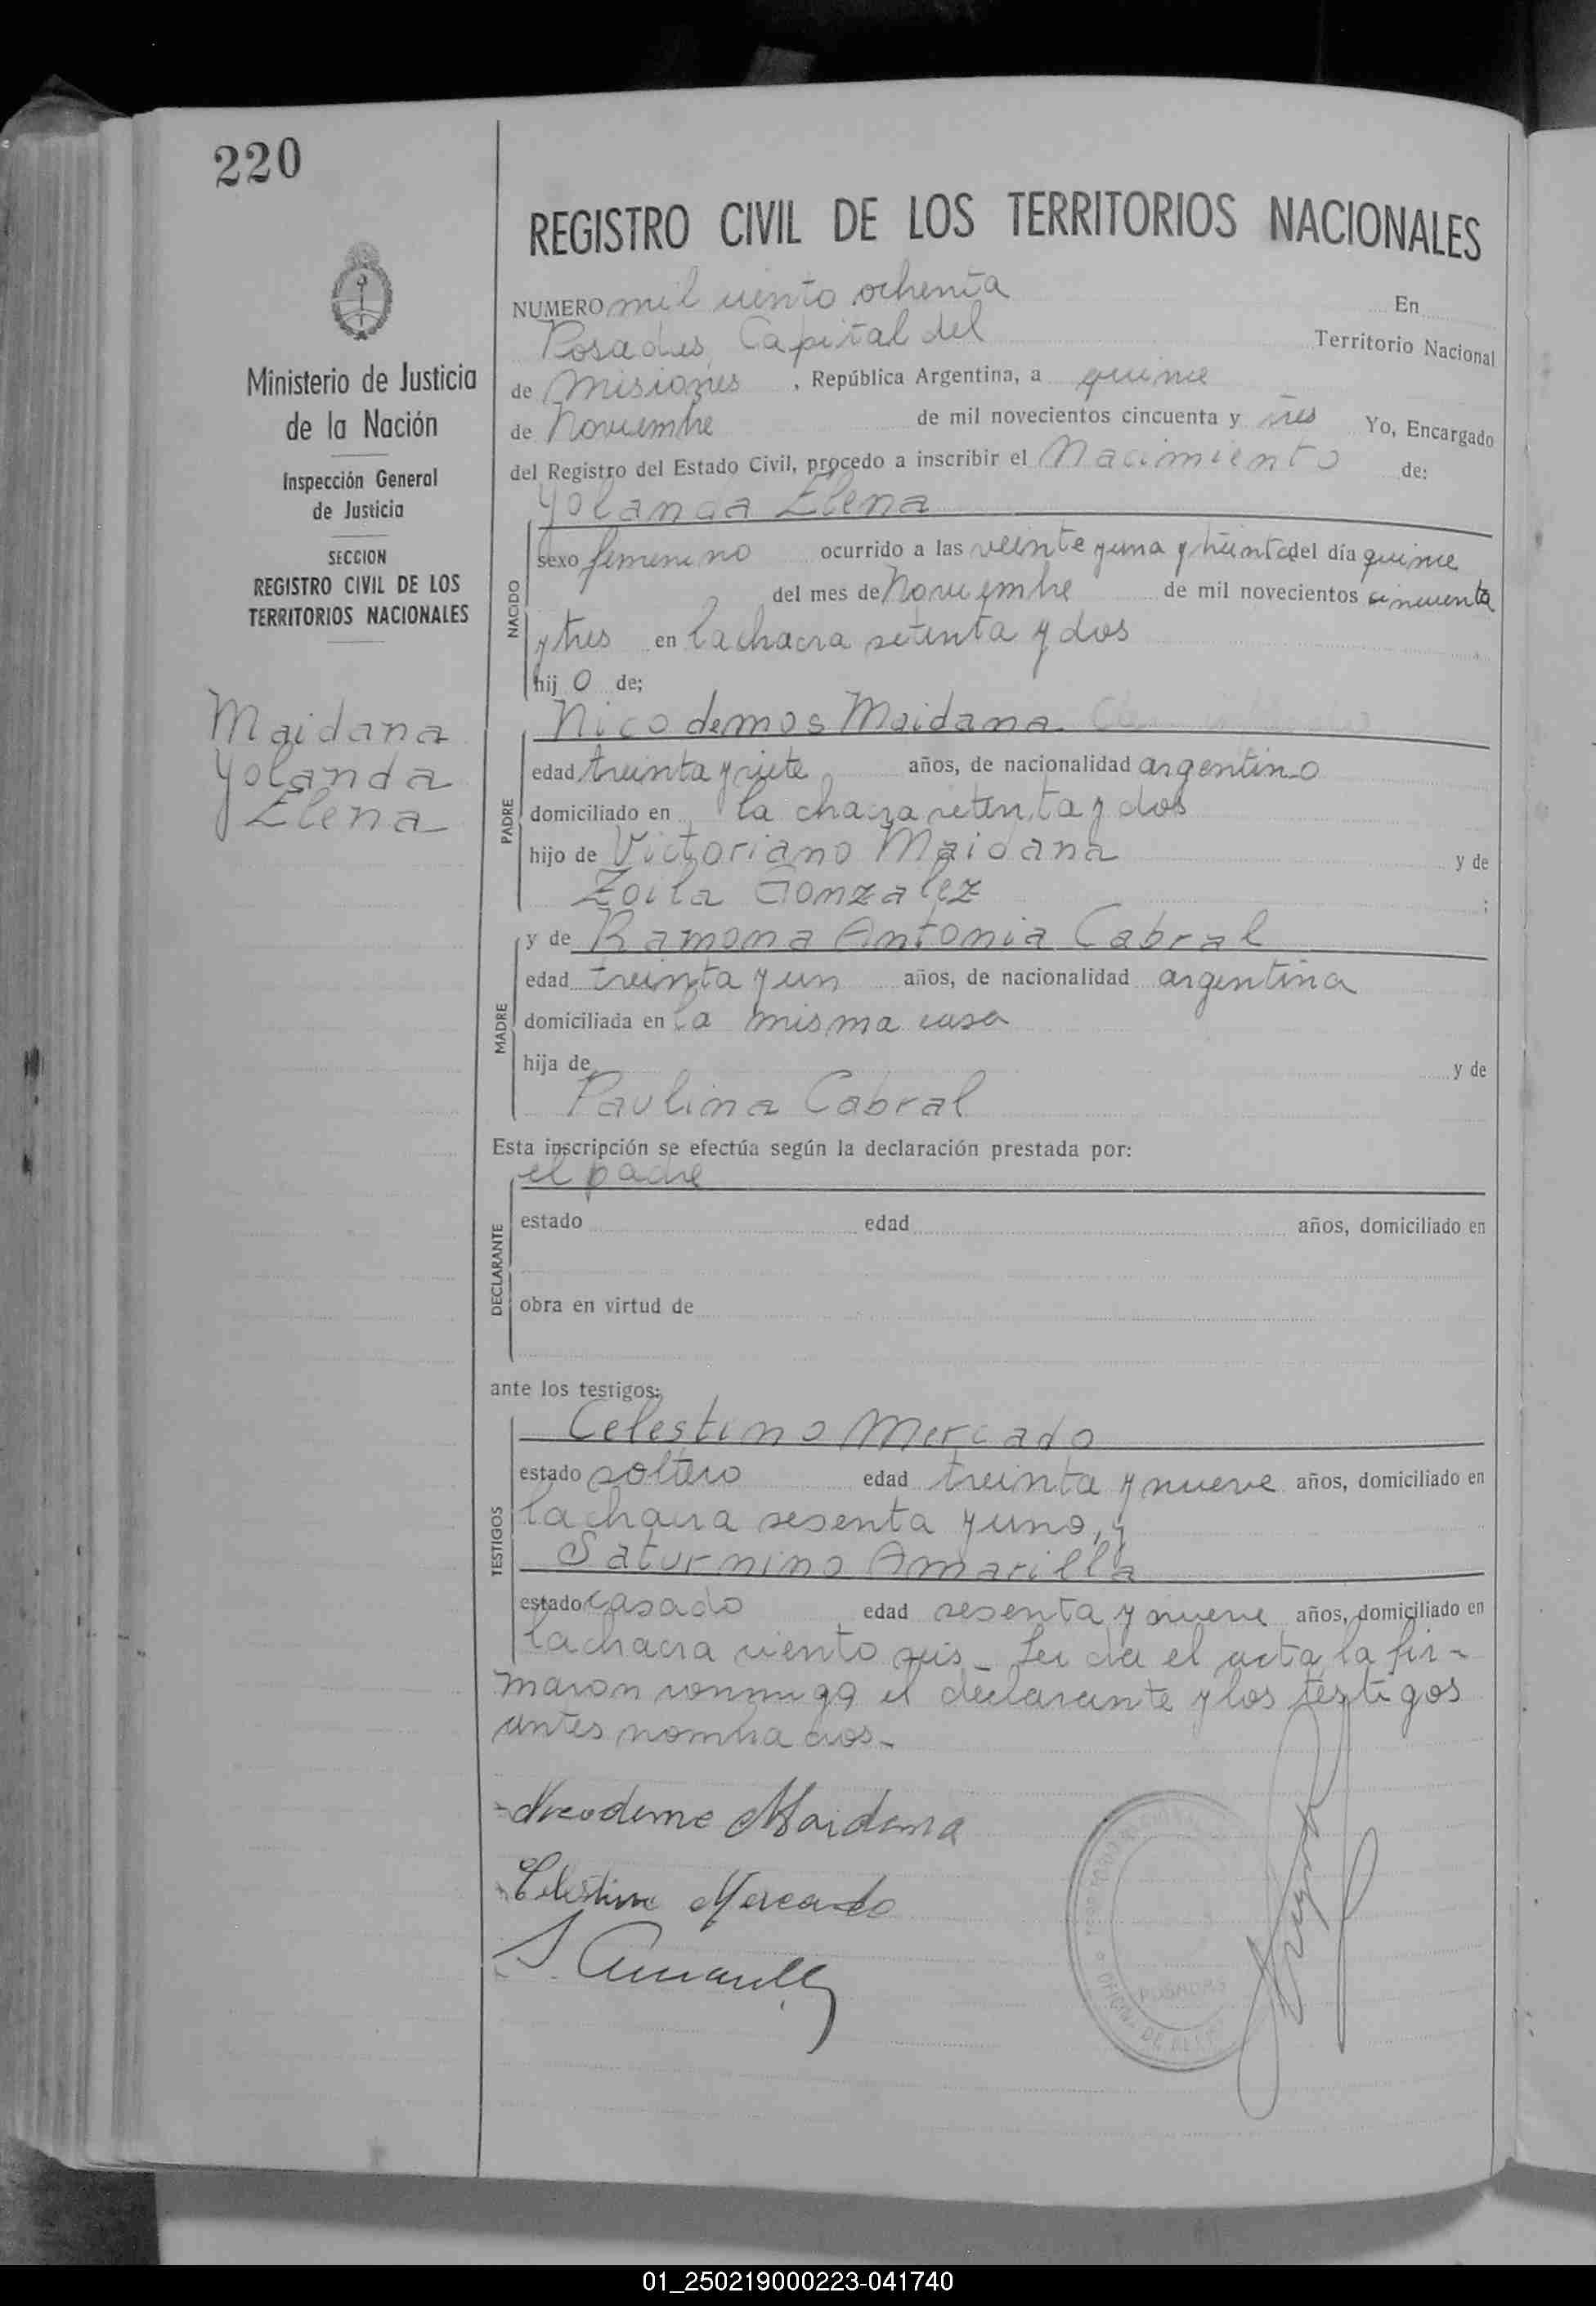 220
Ministerio de Justicia
de la Nación
Inspección General
de Justicia
SECCION
REGISTRO CIVIL DE LOS
TERRITORIOS NACIONALES
Maidana
Yolanda
Elena
REGISTRO CIVIL DE LOS TERRITORIOS NACIONALES
NUMERO mil ciento ochenta En
Posadas, Capital del Territorio Nacional
de Misiones , República Argentina, a quince
de Noviembre de mil novecientos cincuenta y tres Yo, Encargado
del Registro del Estado Civil, procedo a inscribir el Nacimiento de:
Yolanda Elena
NACIDO
sexo femenino ocurrido a las veinte y una y treinta del día quince
del mes de Noviembre de mil novecientos cincuenta
y tres en la chacra setenta y dos
hij o de;
Nicodemos Maidana
PADRE
edad treinta y siete años, de nacionalidad argentino
domiciliado en la chacra setenta y dos
hijo de Victoriano Maidana y de
Zoila Gonzalez ;
y de Ramona Antonia Cabral
MADRE
edad treinta y un años, de nacionalidad argentina
domiciliada en la misma casa
hija de y de
Paulina Cabral
Esta inscripción se efectúa según la declaración prestada por:
el padre
DECLARANTE
estado edad años, domiciliado en
obra en virtud de
ante los testigos:
Celestino Mercado
TESTIGOS
estado soltero edad treinta y nueve años, domiciliado en
la chacra sesenta y uno, y
Saturnino Amarilla
estado casado edad sesenta y nueve años, domiciliado en
la chacra ciento seis - Leida el acta la fir-
maron conmigo el declarante y los testigos
antes nombrados -
Nicodeme Maidana
Celestino Mercado
S. Amarilla
POSADAS
01_250219000223-041740